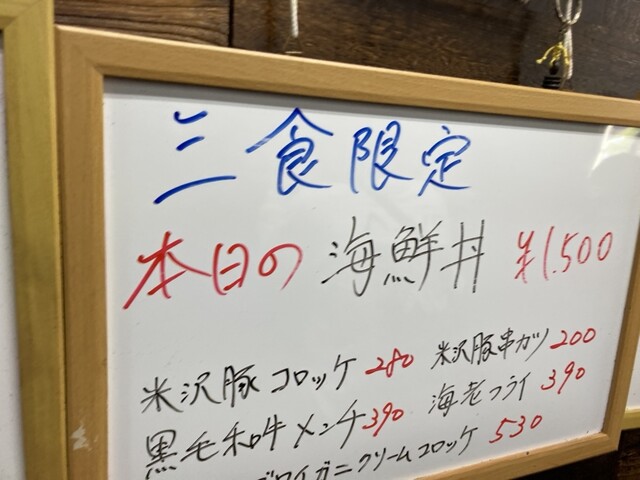 三食限定
本日の海鮮丼 ¥1,500
米沢豚コロッケ 280 米沢豚串カツ 200
黒毛和牛メンチ 390 海老フライ 390
ズワイガニクリームコロッケ 530